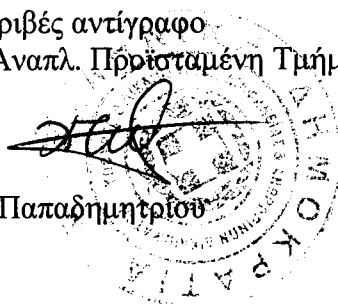 ριβές αντίγραφο
Αναπλ. Προϊσταμένη Τμήμ
Παπαδημητρίου
ΔΗΜΟΚΡΑΤΙΑ